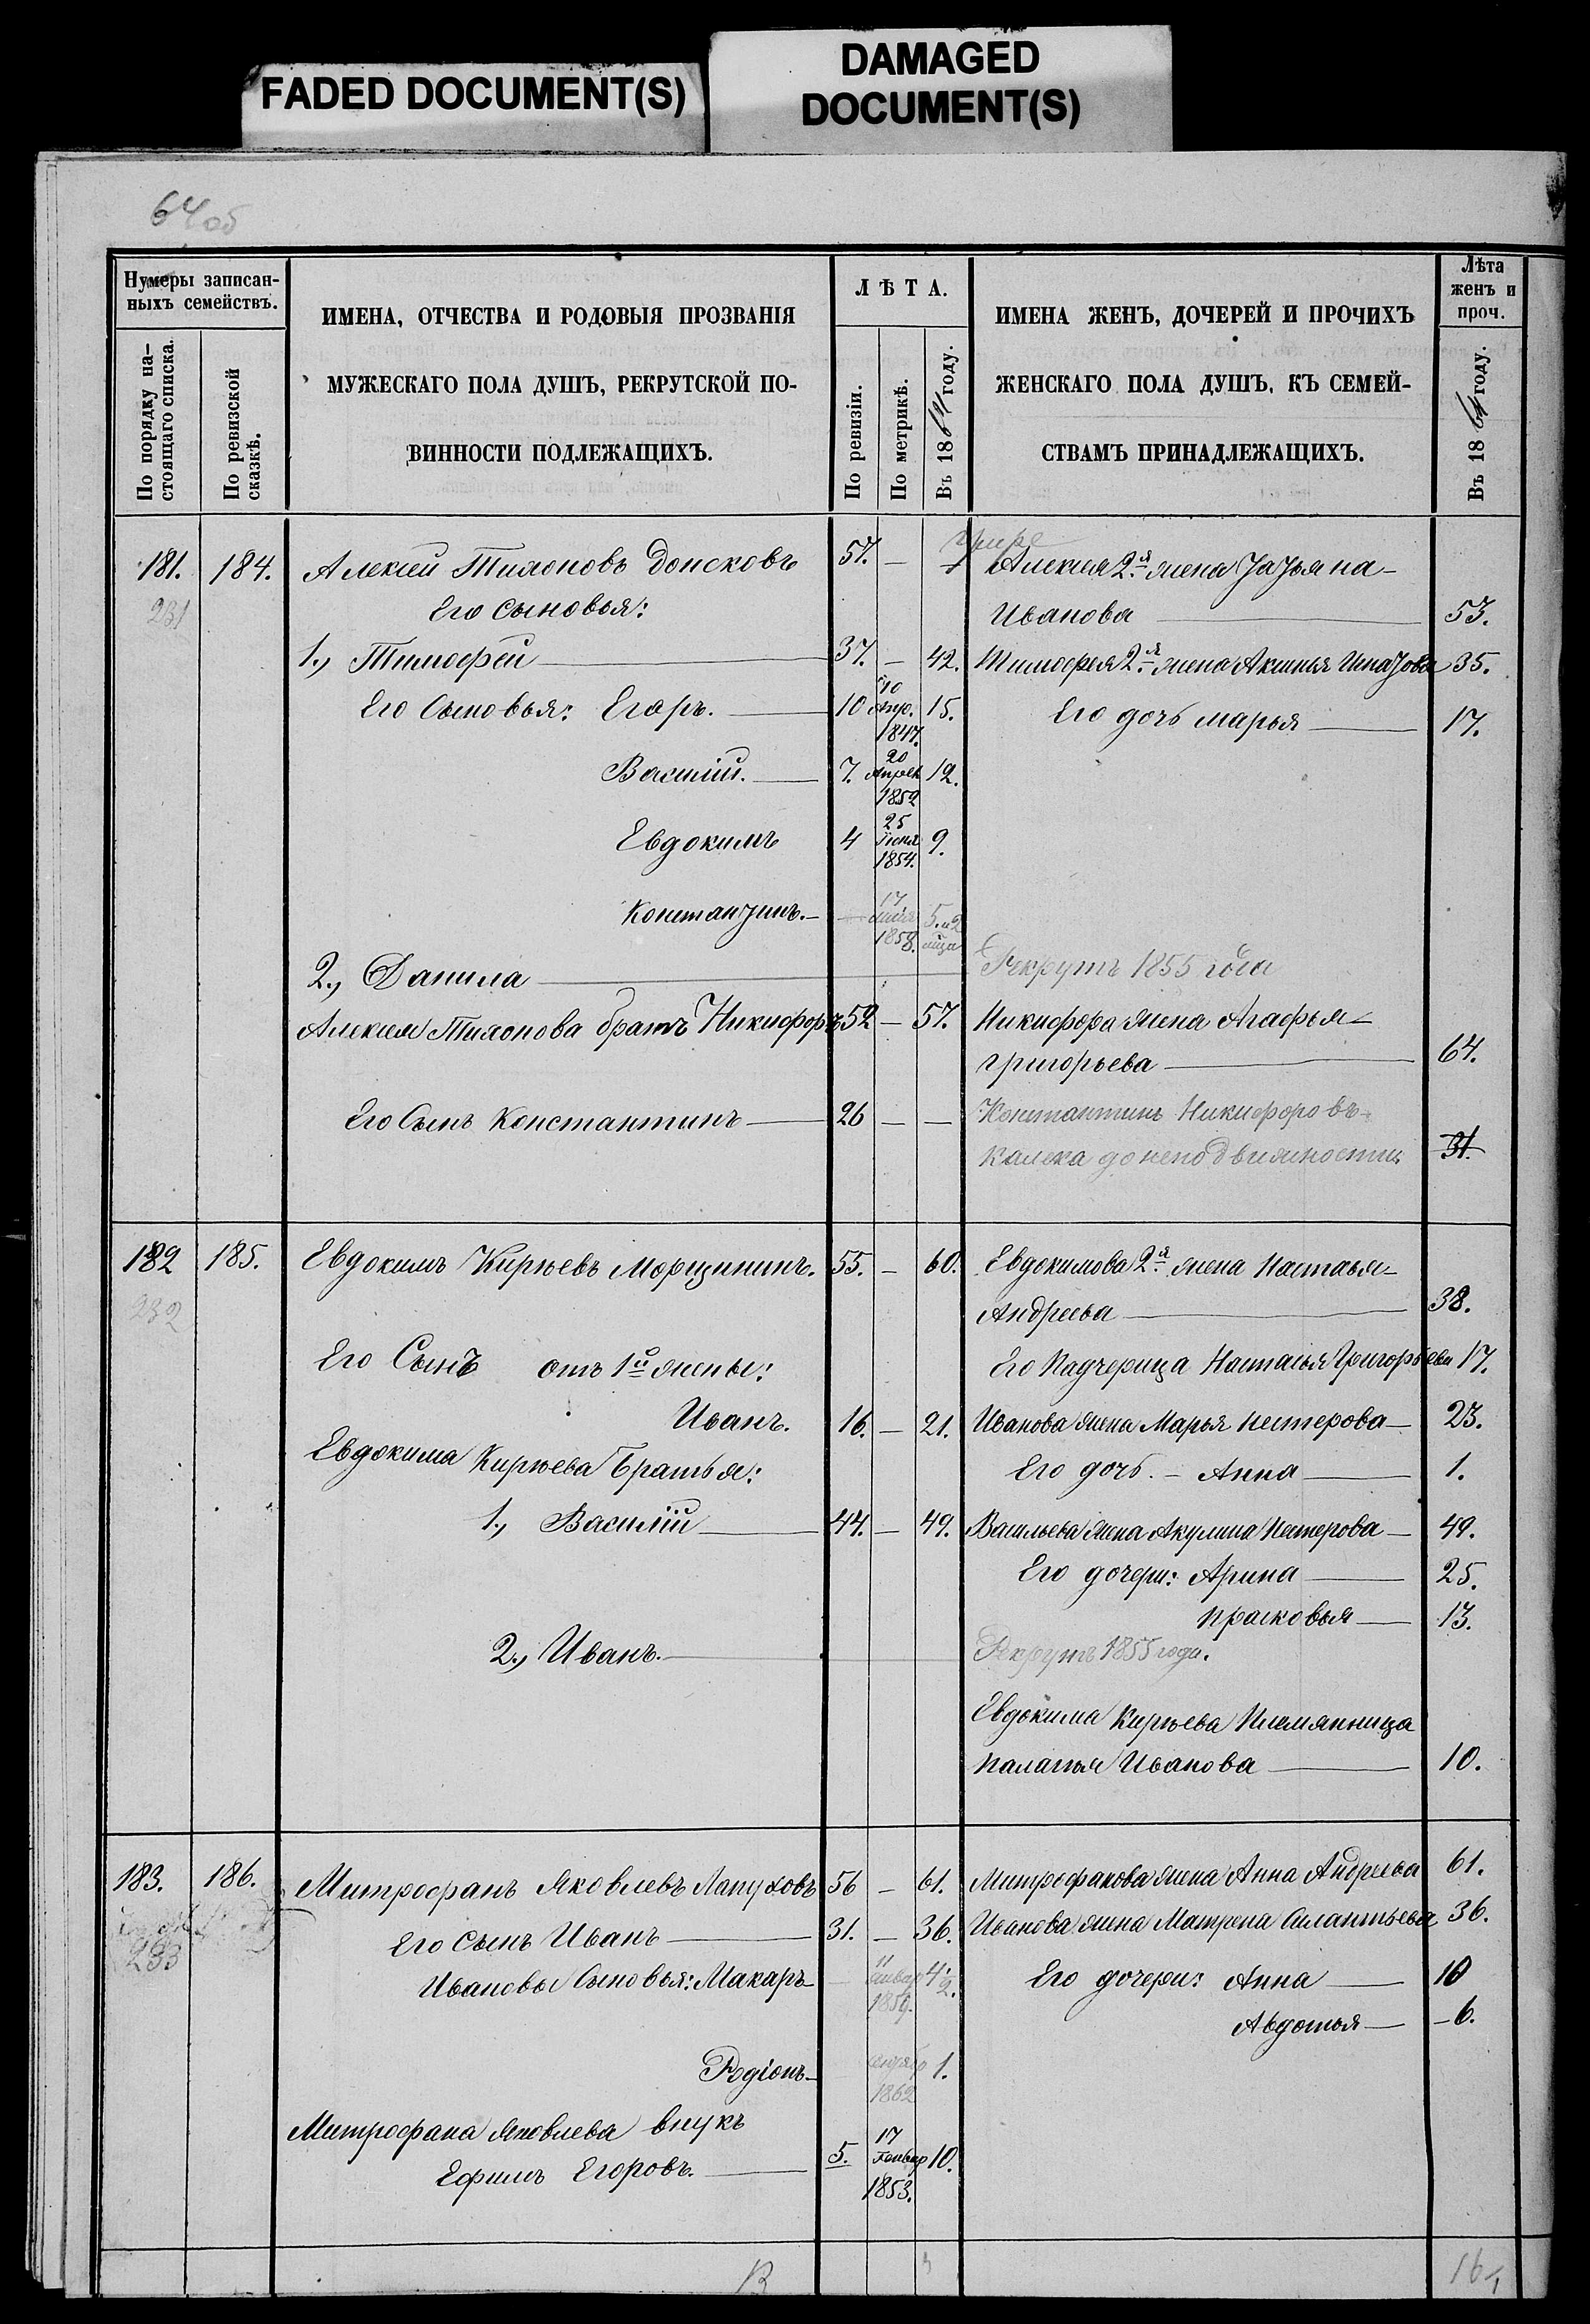 FADED DOCUMENT(S)
DAMAGED
DOCUMENT(S)
64 об
Нумеры записан-
ныхъ семействъ.
По порядку на-
стоящаго списка.
По ревизской
сказкѣ.
ИМЕНА, ОТЧЕСТВА И РОДОВЫЯ ПРОЗВАНІЯ
МУЖЕСКАГО ПОЛА ДУШЪ, РЕКРУТСКОЙ ПО-
ВИННОСТИ ПОДЛЕЖАЩИХЪ.
ЛѢТА.
По ревизіи.
По метрикѣ.
Въ 1864 году.
ИМЕНА ЖЕНЪ, ДОЧЕРЕЙ И ПРОЧИХЪ
ЖЕНСКАГО ПОЛА ДУШЪ, КЪ СЕМЕЙ-
СТВАМЪ ПРИНАДЛЕЖАЩИХЪ.
Лѣта
женъ и
проч.
Въ 1864 году.
181. 184. Алексѣй Тихоновъ Донсковъ 57. — Алексея 2.я жена Татьяна —
231 Его сыновья: Иванова — 53.
1., Тимофей — 37. — 42. Тимофея 2.я жена Аксинья Ипатова 35.
Его Сыновья: Егаръ. — 10 10 Апр. 1847. 15. Его дочь марья — 17.
Василій. — 7. 20 Апрел 1852 12.
Евдокимъ 4 25 Іюля 1854. 9.
Константинъ. — — 17 1858. 5. и 2 мѣца
2., Данила — Рекрутъ 1855 года
Алексея Тихонова братъ Никифоръ 52 — 57. Никифора жена Агафья —
григорьева — 64.
Его Сынъ Константинъ — 26 — — Константинъ Никифоровъ
калека до неподвижности 31.
182 185. Евдокимъ Кирѣевъ Морщининъ. 55. — 60. Евдокимова 2.я жена Настасья —
232 Андреева — 38.
Его Сынъ отъ 1й жены: Его Падчерица Настасья Григорьева 17.
Иванъ. 16. — 21. Иванова жена Марья нестерова — 23.
Евдокима Кирѣева Братья: Его дочь. — Анна — 1.
1., Василій — 44. — 49. Васильева жена Акулина Нестерова — 49.
Его дочери: Арина — 25.
прасковья — 13.
2., Иванъ. — Рекрутъ 1855 года.
Евдокима Кирѣева Племянница
палагья Иванова — 10.
183. 186. Митрофанъ Яковлевъ Лапуховъ 56 — 61. Митрофанова жена Анна Андреева 61.
233 Его сынъ Иванъ — 31. — 36. Иванова жена Матрена Силантьева 36.
Ивановы Сыновья: Макаръ — — 11 Январ 1859. 4. 2. Его дочери: Анна — 10
Авдотья — — 6.
Родіонъ — 1862 1.
Митрофана Яковлева внукъ
Ефимъ Егоровъ. — 5. 17 Генвар 1853. 10.
13
16